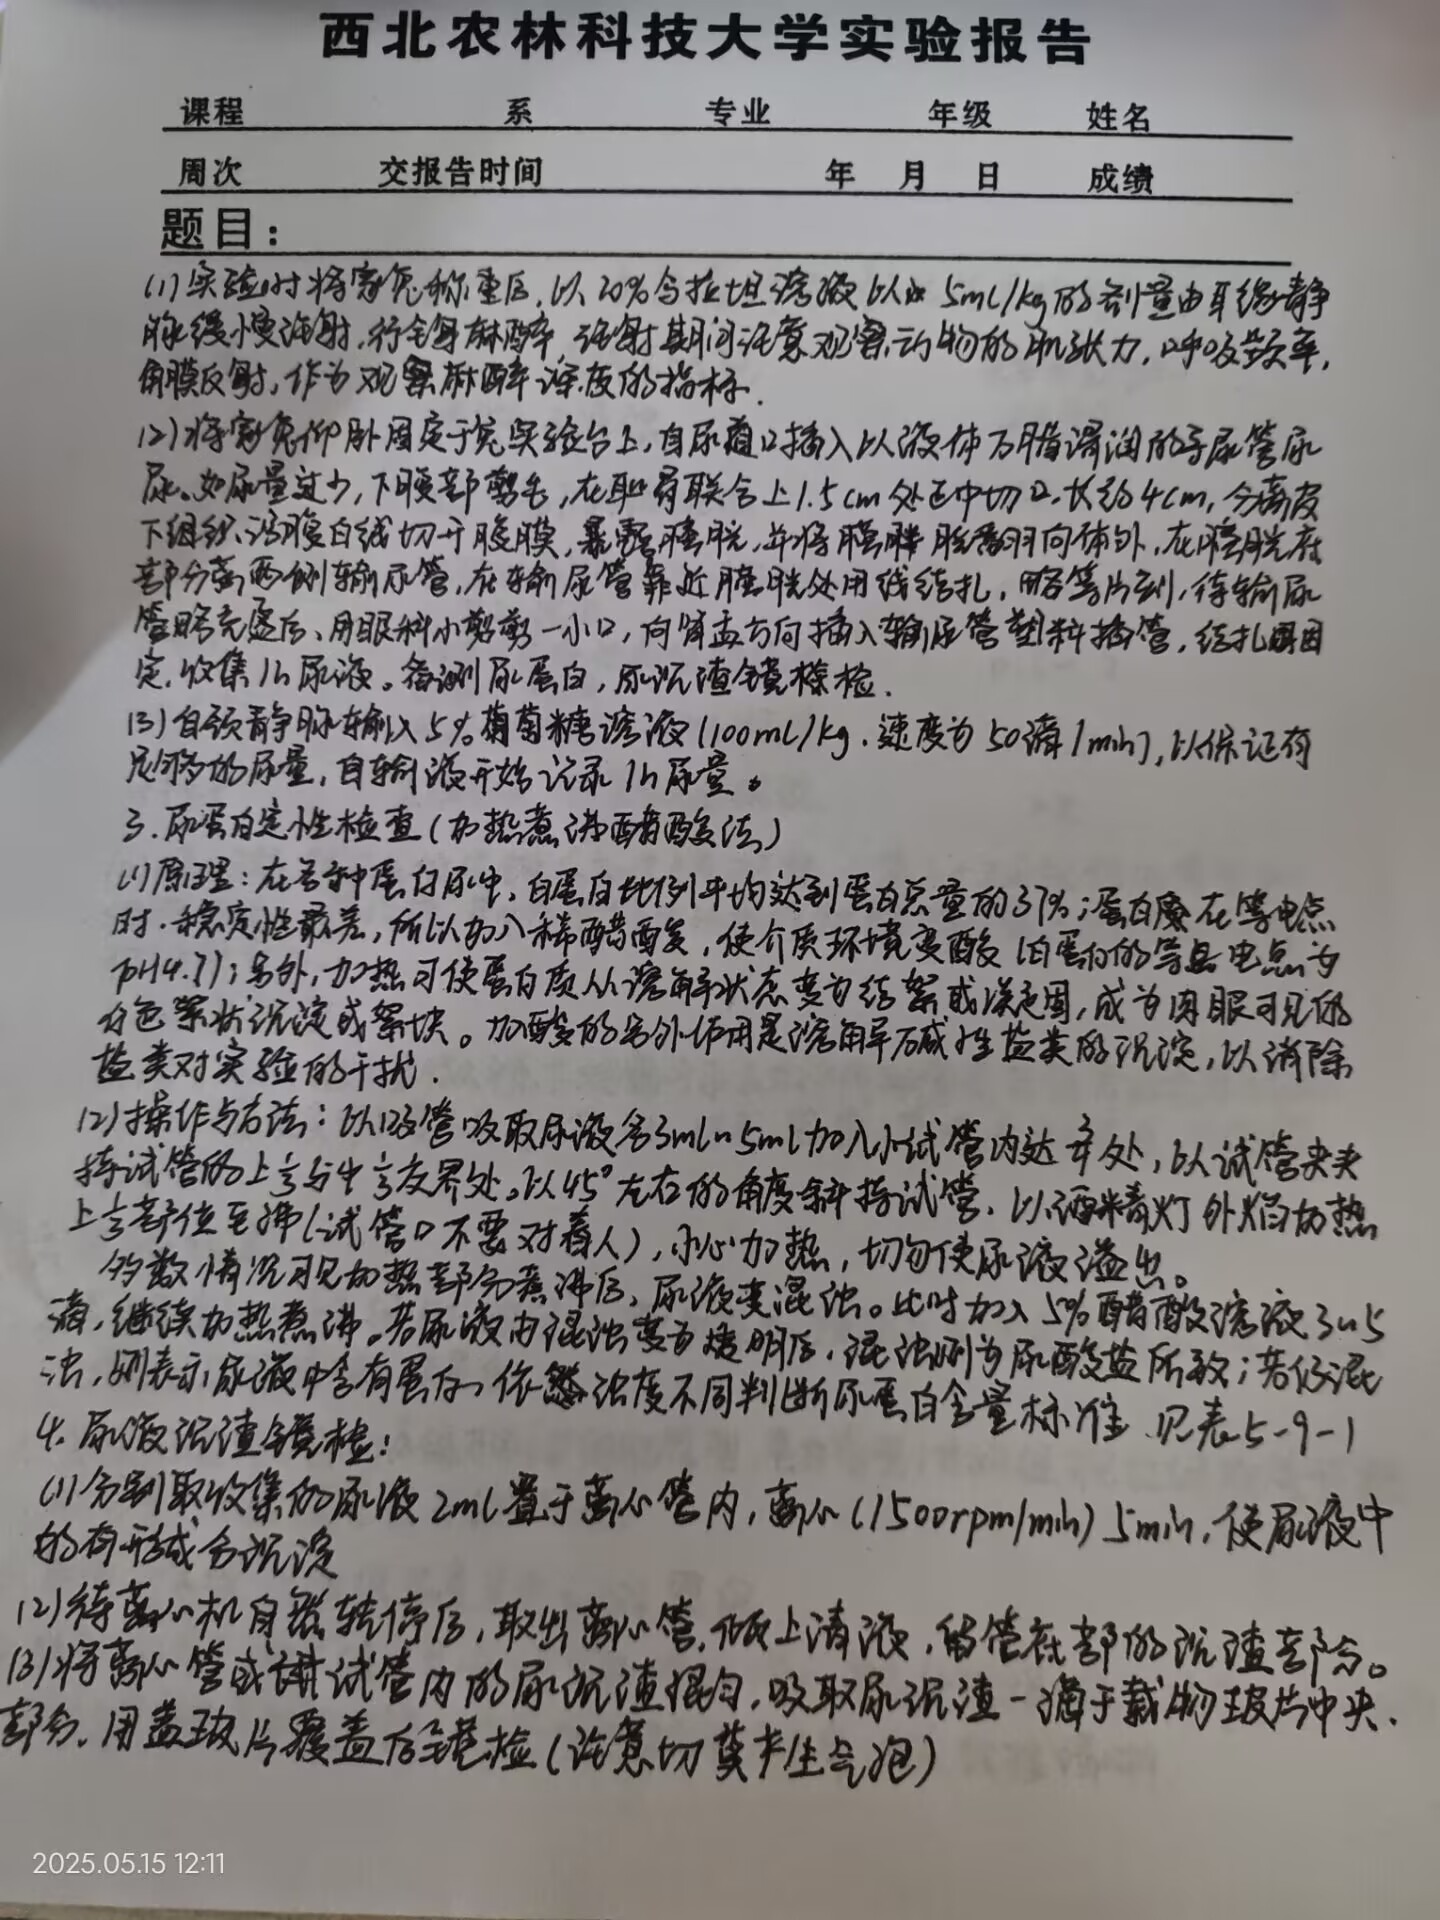 西北农林科技大学实验报告
课程 系 专业 年级 姓名
周次 交报告时间 年 月 日 成绩
题目：
(1)实验时将家兔称重后,以20%乌拉坦溶液以 5mL/kg的剂量由耳缘静
脉缓慢注射,行全身麻醉,注射期间注意观察动物的肌张力,呼吸频率,
角膜反射,作为观察麻醉深度的指标.
(2)将家兔仰卧固定于兔实验台上,自尿道口插入以液体石腊湿润的导尿管尿
尿。如尿量过少,下腹部剪毛,在耻骨联合上1.5cm处正中切口,长约4cm,分离皮
下组织,沿腹白线切开腹膜,暴露膀胱,并将膀胱翻向体外,在膀胱底
部分离两侧输尿管,在输尿管靠近膀胱处用线结扎,略等片刻,待输尿
管略充盈后、用眼科小剪剪一小口,向肾盂方向插入输尿管塑料插管,结扎固
定,收集1h尿液。备测尿蛋白,尿沉渣镜检.
(3)自颈静脉输入5%葡萄糖溶液(100mL/kg.速度为50滴/min),以保证有
足够的尿量,自输液开始记录1h尿量。
3.尿蛋白定性检查(加热煮沸醋酸法)
(1)原理:在各种蛋白尿中,白蛋白比例平均达到蛋白总量的37%;蛋白质在等电点
时.稳定性最差,所以加入稀醋酸,使介质环境变酸(白蛋白的等电点为
pH4.7);另外,加热可使蛋白质从溶解状态变为结絮或凝固,成为肉眼可见的
白色絮状沉淀或絮块。加酸的另外作用是溶解碱性盐类的沉淀,以消除
盐类对实验的干扰.
(2)操作与方法:以吸管吸取尿液各3mL~5mL加入小试管内达 处,以试管夹夹
持试管的上⅓与中⅓交界处。以45°左右的角度斜持试管,以酒精灯外焰加热
上⅓部位至沸(试管口不要对着人),小心加热,切勿使尿液溢出。
多数情况可见加热部分煮沸后,尿液变混浊。此时加入5%醋酸溶液3~5
滴,继续加热煮沸。若尿液内混浊变为透明后,混浊则为尿酸盐所致;若仍混
浊,则表示尿液中含有蛋白,依 浊度不同判断尿蛋白含量标准.见表5-9-1
4.尿液沉渣镜检:
(1)分别取收集的尿液2mL置于离心管内,离心(1500rpm/min)5min,使尿液中
的有形成分沉淀
(2)待离心机自然转停后,取出离心管,倾上清液,留管底部的沉渣部分。
(3)将离心管或试管内的尿沉渣混匀,吸取尿沉渣一滴于载物玻片中央.
部分,用盖玻片覆盖后镜检(注意切莫产生气泡)
2025.05.15 12:11